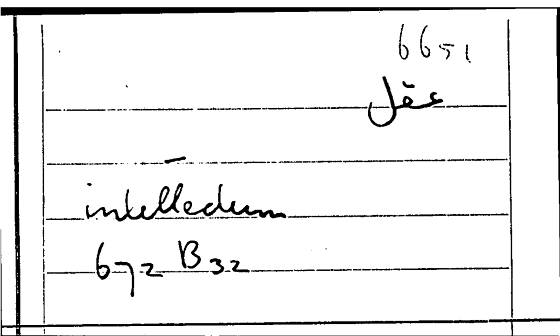 6651
عقل
intellectum
672 B32